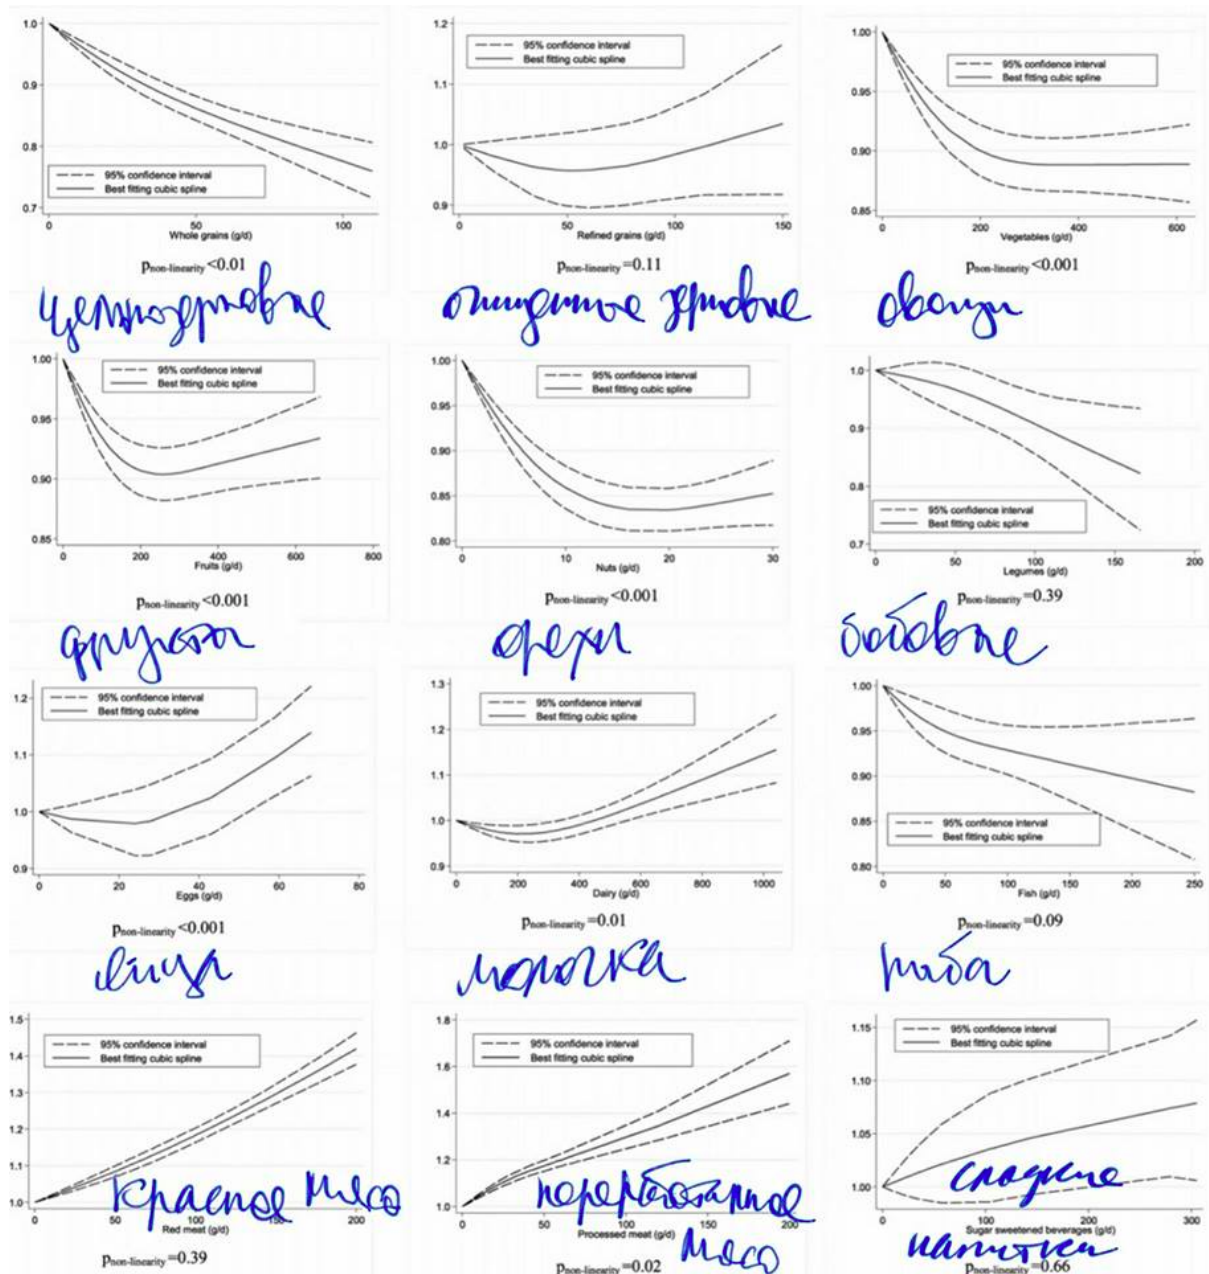 1.0
0.9
0.8
0.7
95% confidence interval
Best fitting cubic spline
0 50 100
Whole grains (g/d)
Pnon-linearity <0.01
цельнозерновые
1.2
1.1
1.0
0.9
95% confidence interval
Best fitting cubic spline
0 50 100 150
Refined grains (g/d)
Pnon-linearity =0.11
очищенные зерновые
1.00
0.95
0.90
0.85
95% confidence interval
Best fitting cubic spline
0 200 400 600
Vegetables (g/d)
Pnon-linearity <0.001
овощи
1.00
0.95
0.90
0.85
95% confidence interval
Best fitting cubic spline
0 200 400 600 800
Fruits (g/d)
Pnon-linearity <0.001
фрукты
1.00
0.95
0.90
0.85
0.80
95% confidence interval
Best fitting cubic spline
0 10 20 30
Nuts (g/d)
Pnon-linearity <0.001
орехи
1.0
0.9
0.8
0.7
95% confidence interval
Best fitting cubic spline
0 50 100 150 200
Legumes (g/d)
Pnon-linearity =0.39
бобовые
1.2
1.1
1.0
0.9
95% confidence interval
Best fitting cubic spline
0 20 40 60 80
Eggs (g/d)
Pnon-linearity <0.001
яйца
1.3
1.2
1.1
1.0
0.9
95% confidence interval
Best fitting cubic spline
0 200 400 600 800 1000
Dairy (g/d)
Pnon-linearity =0.01
молочка
1.00
0.95
0.90
0.85
0.80
95% confidence interval
Best fitting cubic spline
0 50 100 150 200 250
Fish (g/d)
Pnon-linearity =0.09
рыба
1.5
1.4
1.3
1.2
1.1
1.0
95% confidence interval
Best fitting cubic spline
красное мясо
0 50 100 150 200
Red meat (g/d)
Pnon-linearity =0.39
1.8
1.6
1.4
1.2
1.0
95% confidence interval
Best fitting cubic spline
переработанное
0 50 100 150 200
Processed meat (g/d)
мясо
Pnon-linearity =0.02
1.15
1.10
1.05
1.00
95% confidence interval
Best fitting cubic spline
сладкие
0 100 200 300
Sugar sweetened beverages (g/d)
напитки
Pnon-linearity =0.66